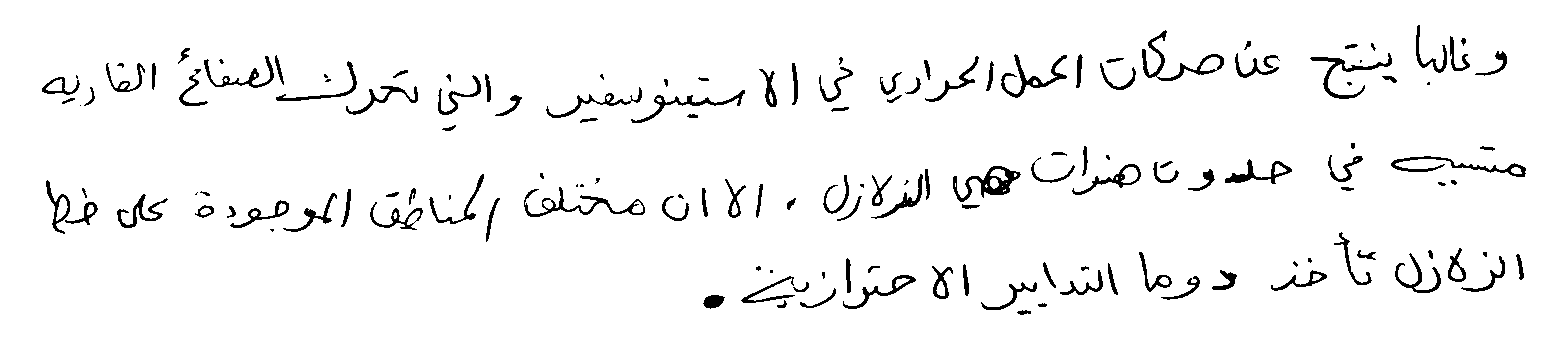 وغالبا ينتج عن حركات الحمل الحراري في الاستينوسفير والتي تحرك الصفائح القاريه
متسببه في حدوث هزات هي الزلازل . الا ان مختلف المناطق الموجودة على خط
الزلازل تأخذ دوما التدابير الاحترازية .